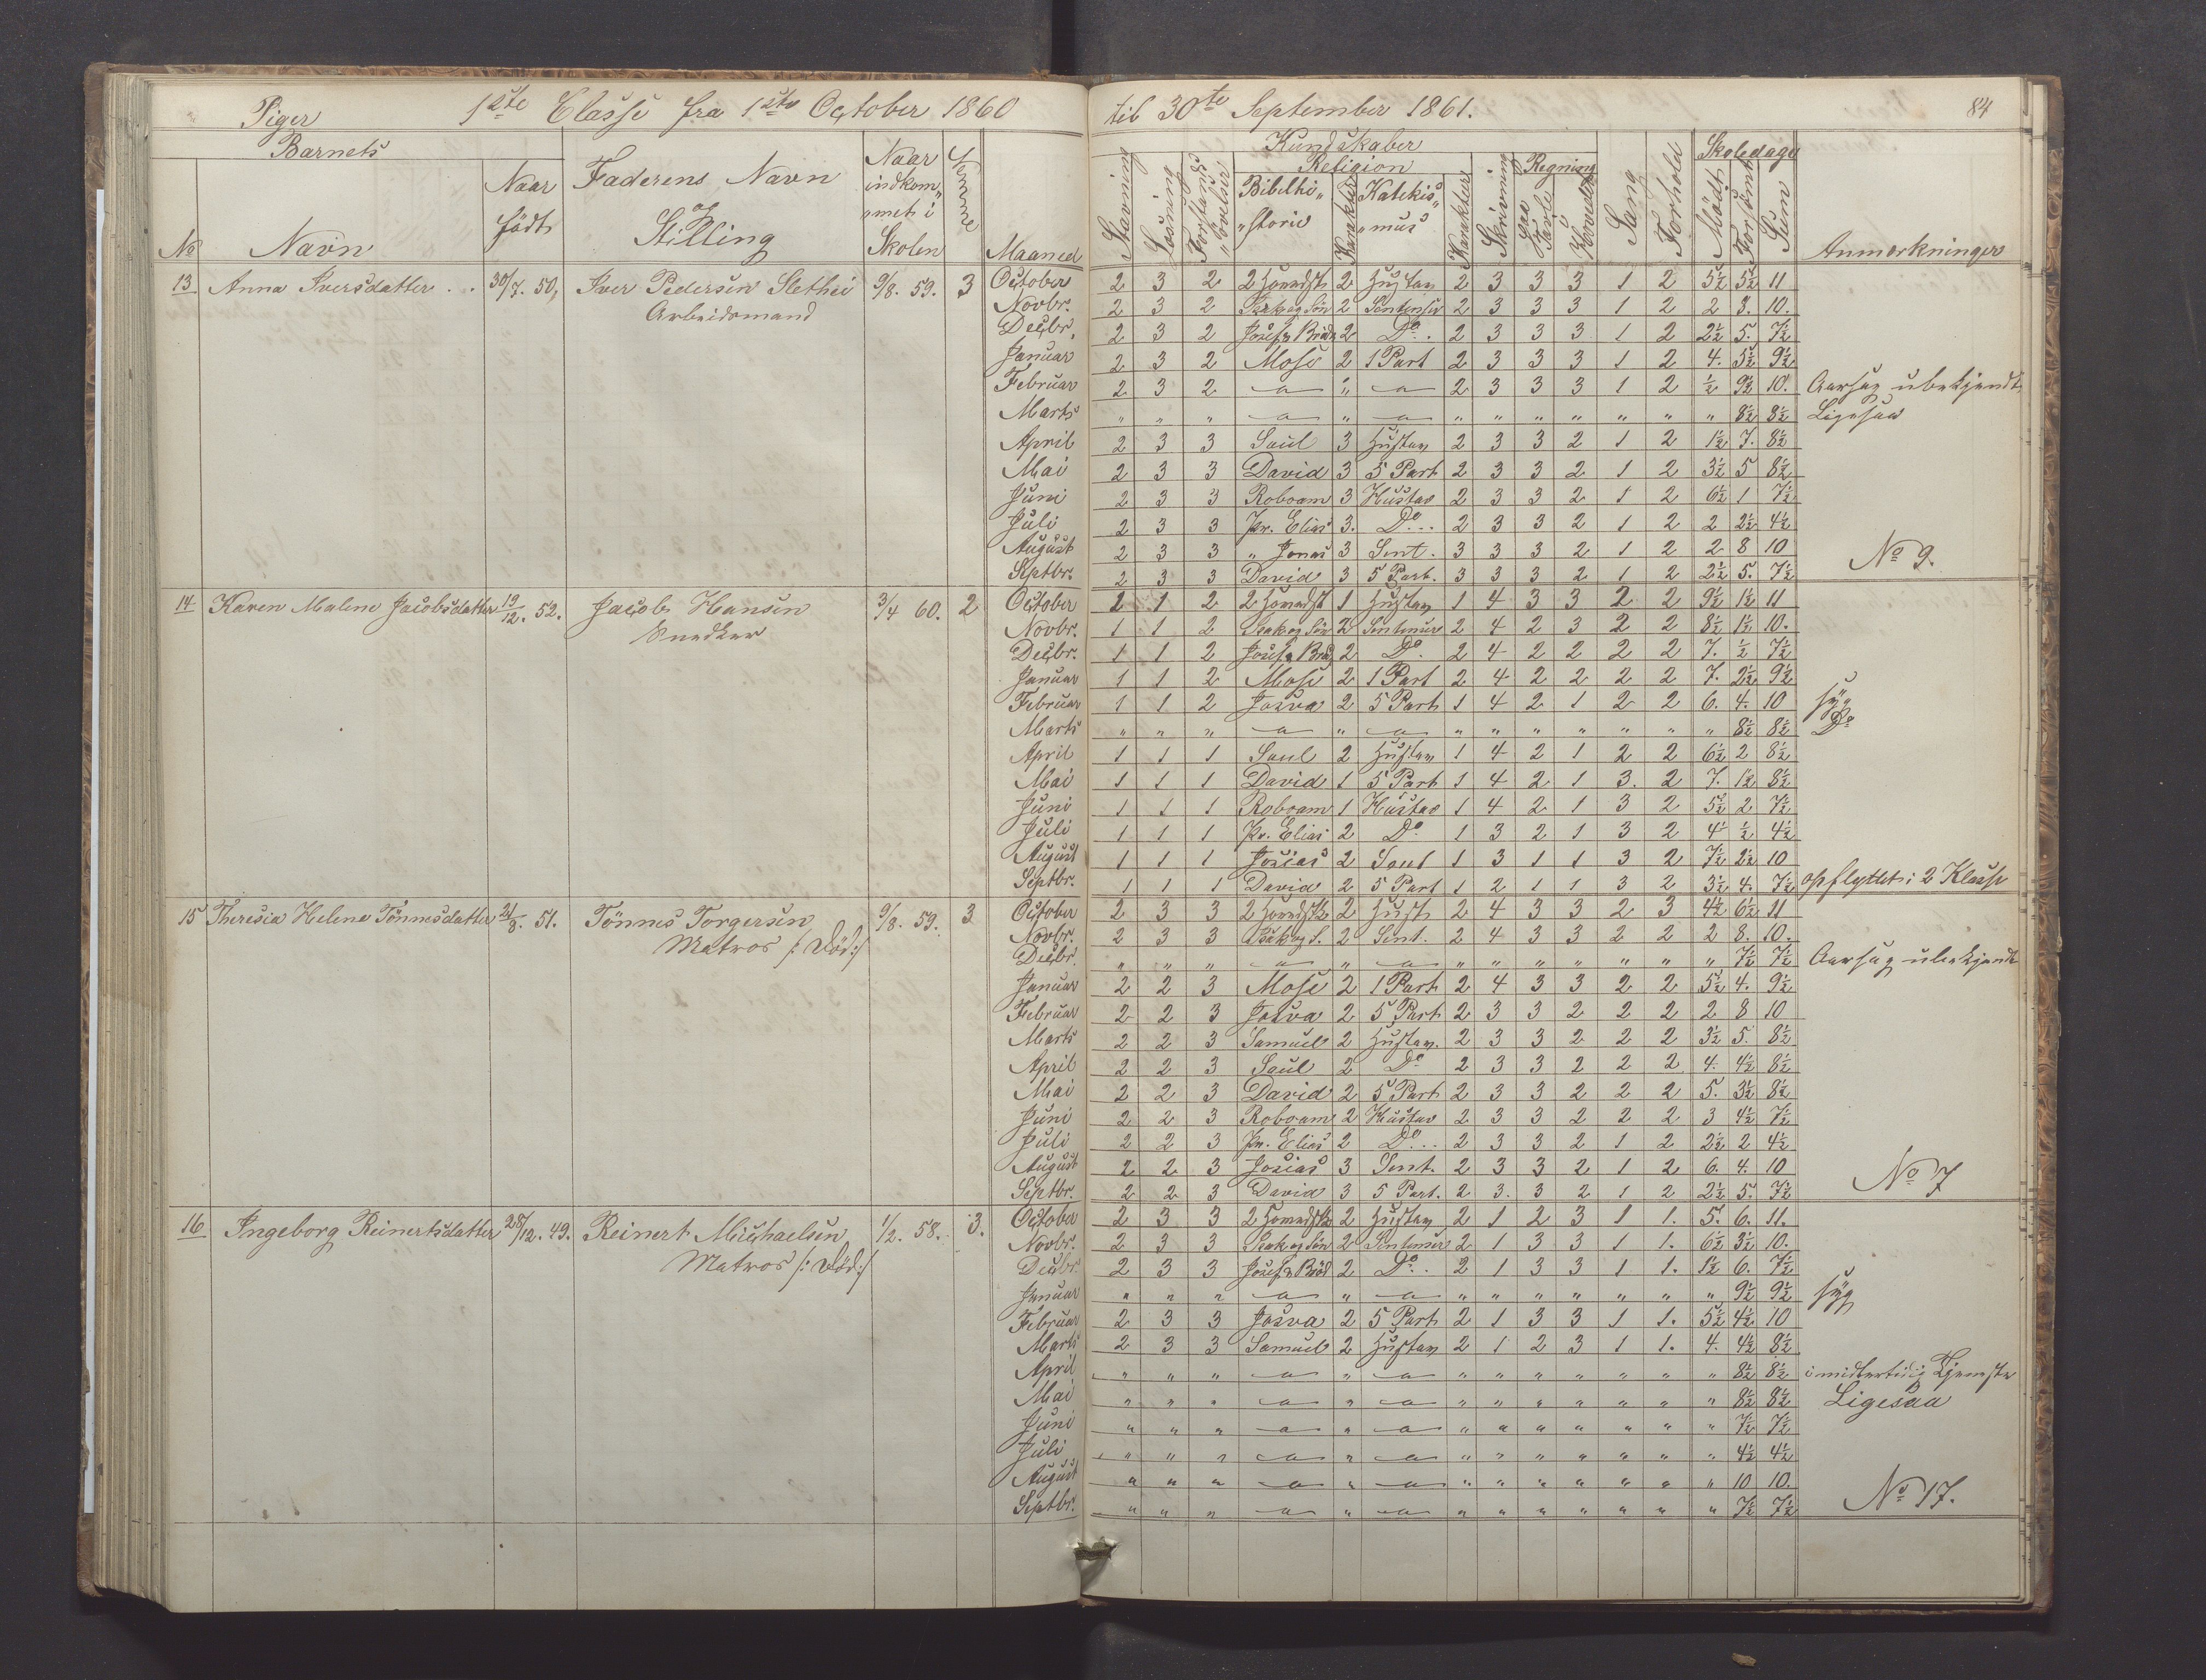 Piger 1ste Classe fra 1ste October 1860 til 30te September 1861. 84
Barnets Kundskaber Skoledage
Religion Regning
No Navn Naar født Faderens Navn og Stilling Naar indkommet i Skolen Evne Maaned Stavning Læsning Forstandsøvelser Bibelhistorie Karakter Katekismus Karakter Skrivning Paa Tavle i Hovedet Sang Forhold Mødt Forsømt Sum Anmærkninger
13 Anna Iversdatter 30/7. 50, Iver Pedersen Slethei 9/8. 59. 3 October 2 3 2 2 2 3 3 3 1 2 5½ 5½ 11
Arbeidsmand Novbr. 2 3 2 Isak og Søn 2 Sentenser 2 3 3 3 1 2 2 8. 10.
Decbr. 2 3 2 Josef 2 Do. 2 3 3 3 1 2 2½ 5. 7½
Januar 2 3 2 Mose 2 1 Part 2 3 3 3 1 2 4. 5½ 9½
Februar 2 3 2 " 2 3 3 3 1 2 ½ 9½ 10. Aarsag ubekjendt
Marts " " " " " " " " " " " 8½ 8½ Ligesaa
April 2 3 3 Saul 3 Hustav 2 3 3 2 1 2 1½ 7. 8½
Mai 2 3 3 David 3 5 Part 2 3 3 2 1 2 3½ 5 8½
Juni 2 3 3 Roboam 3 Hustav 2 3 3 2 1 2 6½ 1 7½
Juli 2 3 3 Pr. Elias 3. Do.. 2 3 3 2 1 2 2 2½ 4½
August 2 3 3 " Jonas 3 Sent. 3 3 3 2 1 2 2 8 10 No 9.
Septbr. 2 3 3 David 3 5 Part. 3 3 3 2 1 2 2½ 5. 7½
14 Karen Malene Jacobsdatter 19/12. 52. Jacob Hansen 3/4 60. 2 October 2 1 2 1 Hustav 1 4 3 3 2 2 9½ 1½ 11
Snedker Novbr. 1 1 2 Isak og Søn 2 Sentenser 2 4 2 3 2 2 8½ 1½ 10.
Decbr. 1 1 2 Josef 2 Do. 2 4 2 2 2 2 7. ½ 7½
Januar 1 1 2 Mose 2 1 Part 2 4 2 2 2 2 7. 2½ 9½
Februar 1 1 2 Josva 2 5 Part 1 4 2 1 2 2 6. 4. 10 syg
Marts " " " " " " " " " " " 8½ 8½ Do
April 1 1 1 Saul 2 Hustav 1 4 2 1 2 2 6½ 2 8½
Mai 1 1 1 David 1 5 Part 1 4 2 1 3. 2 7. 1½ 8½
Juni 1 1 1 Roboam 1 Hustav 1 4 2 1 3 2 5½ 2 7½
Juli 1 1 1 Pr. Elias 2 Do. 1 3 2 1 3 2 4 ½ 4½
August 1 1 1 Josias 2 Sent 1 3 1 1 3 2 7½ 2½ 10
Septbr. 1 1 1 David 2 5 Part 1 2 1 1 3 2 3½ 4. 7½ opflyttet i 2 Klasse
15 Theresia Helene Tönnesdatter 51. Tönnes Torgersen 9/8. 59. 3 October 2 3 3 2 Hust 2 4 3 3 2 3 4½ 6½ 11
Matros /: Död :/ Novbr. 2 3 3 Isak og S. 2 Sent. 2 4 3 3 2 2 2 8. 10.
Decbr. " " " " " " " " " " " 7½ 7½ Aarsag ubekjendt
Januar 2 2 3 Mose 2 1 Part 2 4 3 3 2 2 5½ 4. 9½
Februar 2 2 3 Josva 2 5 Part 2 3 3 2 2 2 2 8 10
Marts 2 2 3 Samuel 2 Hustav. 2 3 3 2 2 2 3½ 5. 8½
April 2 2 3 Saul 2 Do 2 3 3 2 2 2 4. 4½ 8½
Mai 2 2 3 David 2 5 Part 2 3 3 2 2 2 5. 3½ 8½
Juni 2 2 3 Roboam 2 Hustav 2 3 3 2 2 2 3 4½ 7½
Juli 2 2 3 Pr. Elias 2 Do.. 2 3 3 2 1 2 2½ 2 4½
August 2 2 3 Josias 3 Sent. 2 3 3 2 1 2 6. 4. 10 No 7
Septbr. 2 2 3 David 3 5 Part. 2 3. 3 2 1 2 2½ 5. 7½
16 Ingeborg Reinertsdatter 28/12. 49. Reinert Michaelsen 1/2. 58. 3. October 2 3 3 2 Hustav 2 1 2 3 1 1. 5. 6. 11.
Matros /: Död :/ Novbr. 2 3 3 Isak og Søn 2 Sentenser 2 1 3 3 1 1. 6½ 3½ 10.
Decbr 2 3 3 Josef 2 Do.. 2 1 3 3 1 1. 1½ 6. 7½
Januar " " " " " " " " " " " 9½ 9½ syg
Februar 2 3 3 Josva 2 5 Part 2 1 3 3 1 1. 5½ 4½ 10
Marts 2 3 3 Samuel 2 Hustav 2 1 2 3 1 1. 4. 4½ 8½
April " " " " " " " " " " " 8½ 8½ i midlertidig Tjeneste
Mai " " " " " " " " " " " 8½ 8½ Ligesaa
Juni " " " " " " " " " " " 7½ 7½
Juli " " " " " " " " " " " 4½ 4½
August " " " " " " " " " " " 10 10. No 17.
Septbr. " " " " " " " " " " " 7½ 7½